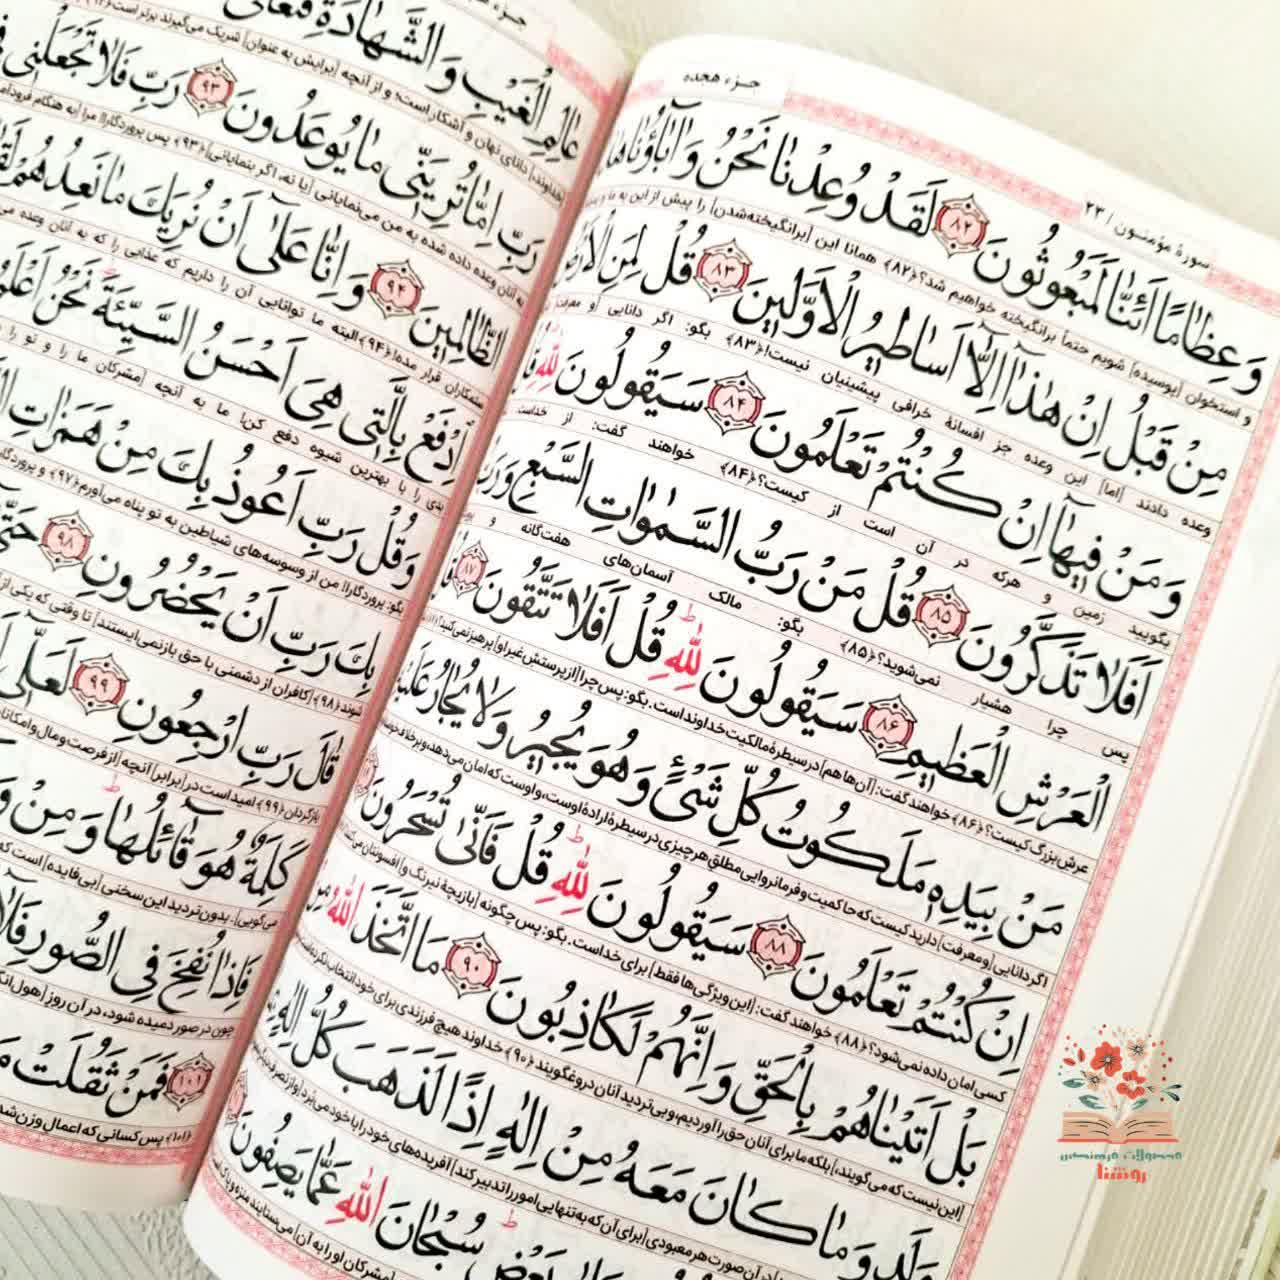 جزء هجده
سورهٔ مؤمنون / ۲۳
وَعِظَامًا اَئِنَّا لَمَبْعُوثُونَ ﴿۸۲﴾ لَقَدْ وُعِدْنَا نَحْنُ وَاٰبَاؤُنَا هٰذَا
و استخوان [پوسیده] شویم حتماً برانگیخته خواهیم شد؟﴿۸۲﴾ همانا این [برانگیخته‌شدن] را پیش از این به ما و
مِنْ قَبْلُ اِنْ هٰذَا اِلَّا اَسَاطِیرُ الْاَوَّلِینَ ﴿۸۳﴾ قُلْ لِمَنِ الْاَرْضُ
وعده دادند [اما] این وعده جز افسانهٔ خرافی پیشینیان نیست!﴿۸۳﴾ بگو: اگر دانایی [و معرفت
وَمَنْ فِیهَا اِنْ کُنْتُمْ تَعْلَمُونَ ﴿۸۴﴾ سَیَقُولُونَ لِلّٰهِ
بگویید زمین و هرکه در آن است از کیست؟﴿۸۴﴾ خواهند گفت: از خداست
اَفَلَا تَذَکَّرُونَ ﴿۸۵﴾ قُلْ مَنْ رَبُّ السَّمٰوَاتِ السَّبْعِ وَرَبُّ
پس چرا هشیار نمی‌شوید؟﴿۸۵﴾ بگو: مالک آسمان‌های هفت‌گانه و
الْعَرْشِ الْعَظِیمِ ﴿۸۶﴾ سَیَقُولُونَ لِلّٰهِ قُلْ اَفَلَا تَتَّقُونَ ﴿۸۷﴾
عرش بزرگ کیست؟﴿۸۶﴾ خواهند گفت: [آن‌ها هم] در سیطرهٔ مالکیت خداوند است. بگو: پس چرا [از پرستش غیر او] پرهیز نمی‌کنید؟
مَنْ بِیَدِهِ مَلَکُوتُ کُلِّ شَیْءٍ وَهُوَ یُجِیرُ وَلَا یُجَارُ عَلَیْهِ
اگر دانایی [و معرفت] دارید کیست که حاکمیت و فرمانروایی مطلق هرچیزی در سیطرهٔ ارادهٔ اوست، و اوست که امان می‌دهد، و برخلاف
اِنْ کُنْتُمْ تَعْلَمُونَ ﴿۸۸﴾ سَیَقُولُونَ لِلّٰهِ قُلْ فَاَنّٰی تُسْحَرُونَ
کسی امان داده نمی‌شود؟﴿۸۸﴾ خواهند گفت: [این ویژگی‌ها فقط] برای خداست. بگو: پس چگونه [بازیچهٔ نیرنگ و] افسونتان می‌کنند
بَلْ اَتَیْنَاهُمْ بِالْحَقِّ وَاِنَّهُمْ لَکَاذِبُونَ ﴿۹۰﴾ مَا اتَّخَذَ اللّٰهُ مِنْ
[این نیست که می‌گویند،] بلکه ما برای آنان حق را آوردیم، و بی‌تردید آنان دروغگویند﴿۹۰﴾ خداوند هیچ فرزندی برای خود انتخاب نکرده
وَلَدٍ وَمَا کَانَ مَعَهُ مِنْ اِلٰهٍ اِذًا لَذَهَبَ کُلُّ اِلٰهٍ
در آن صورت هر معبودی [برای آن که به تنهایی امور را تدبیر کند] آفریده‌های خود را با خود می‌بُرد
بَعْضٍ سُبْحَانَ اللّٰهِ عَمَّا یَصِفُونَ
مشرکان او را به آن] می‌ستایند منزه و پاک
عَالِمِ الْغَیْبِ وَالشَّهَادَةِ فَتَعَالٰی
[خداوند،] دانای نهان و آشکار است؛ و از آنچه [برایش به عنوان] شریک می‌گیرند برتر است
رَبِّ اِمَّا تُرِیَنِّی مَا یُوعَدُونَ ﴿۹۳﴾ رَبِّ فَلَا تَجْعَلْنِی
به آنان وعده داده شده به من می‌نمایانی [یا نه، اگر بنمایانی]﴿۹۳﴾ پس پروردگارا! مرا [به هنگام
الظَّالِمِینَ ﴿۹۴﴾ وَاِنَّا عَلٰی اَنْ نُرِیَكَ مَا نَعِدُهُمْ
ستمکاران قرار مده!﴿۹۴﴾ البته ما توانایی آن را داریم که عذابی را که به آنان وعده
اِدْفَعْ بِالَّتِی هِیَ اَحْسَنُ السَّیِّئَةَ نَحْنُ اَعْلَمُ
بدی را با بهترین شیوه دفع کن! ما به آنچه [مشرکان ما را و تو را
وَقُلْ رَبِّ اَعُوذُ بِكَ مِنْ هَمَزَاتِ
بگو: پروردگارا! من از وسوسه‌های شیاطین به تو پناه می‌آورم﴿۹۷﴾ و
بِكَ رَبِّ اَنْ یَحْضُرُونِ ﴿۹۸﴾ حَتّٰی
شوند﴿۹۸﴾ [کافران از دشمنی با حق بازنمی‌ایستند] تا وقتی که یکی از
قَالَ رَبِّ ارْجِعُونِ ﴿۹۹﴾ لَعَلِّی
بازگردان﴿۹۹﴾ امید است در [برابر] آنچه [از فرصت و مال و امکانات
کَلِمَةٌ هُوَ قَائِلُهَا وَمِنْ
می‌گویی]. بدون تردید این سخنی [بی‌فایده] است که
فَاِذَا نُفِخَ فِی الصُّورِ فَلَا
چون در صور دمیده شود، در آن روز [هول
﴿۱۰۱﴾ فَمَنْ ثَقُلَتْ
﴿۱۰۱﴾ پس کسانی که اعمال وزن
محصولات فرهنگی
روشنا